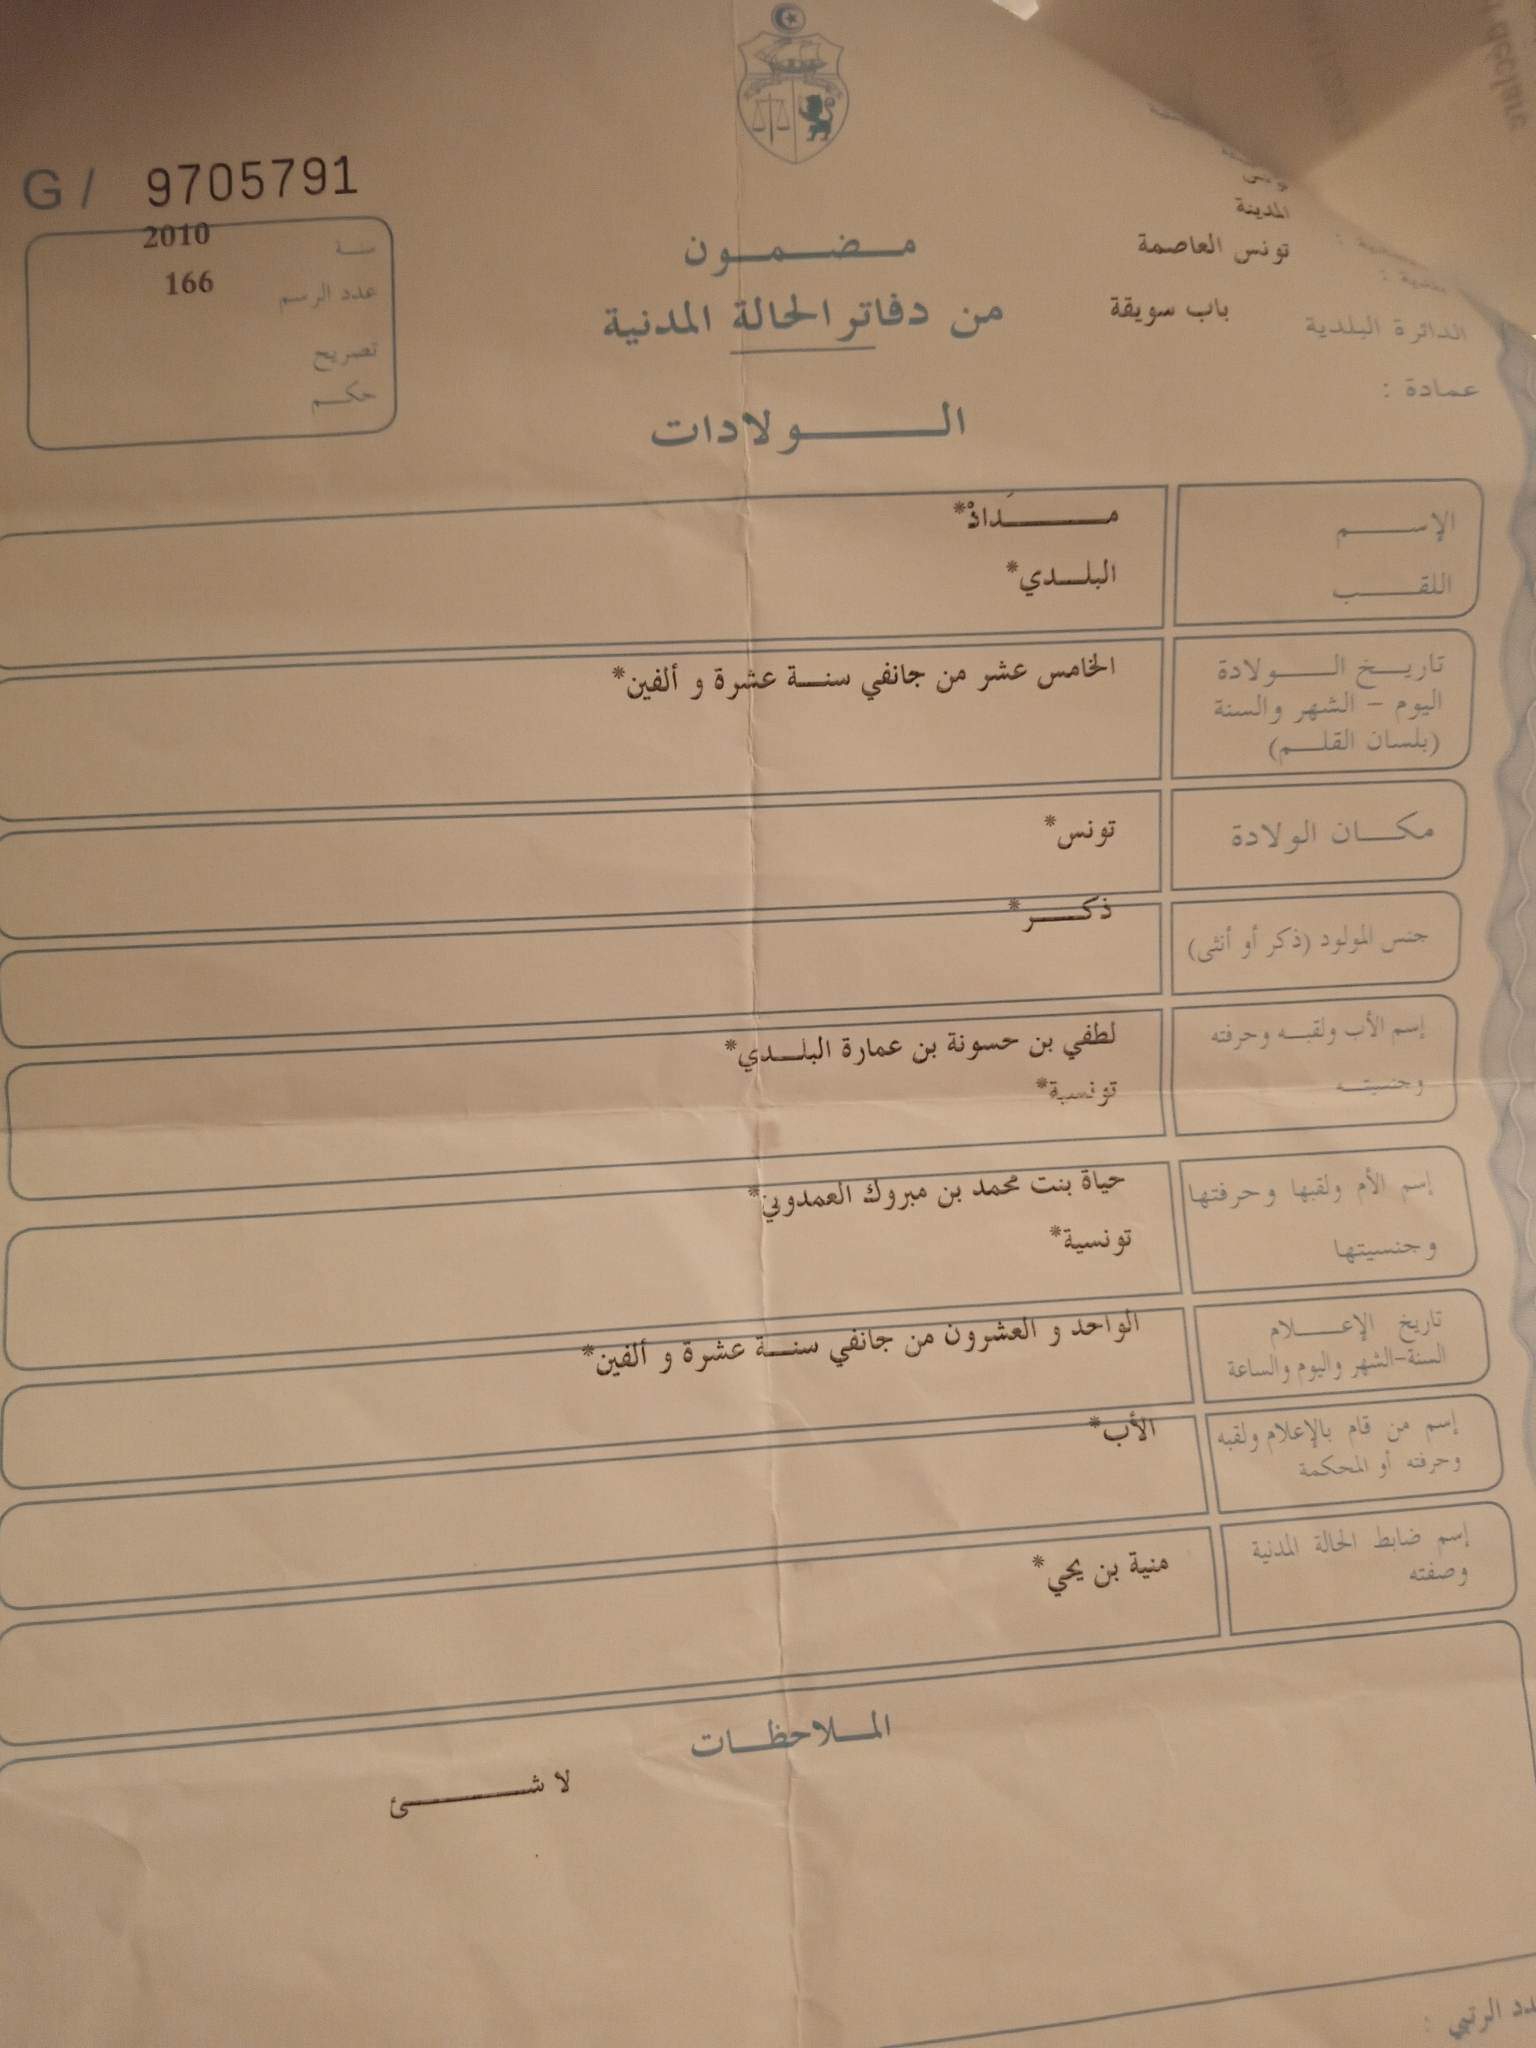 G / 9705791
المدينة
تونس العاصمة
الدائرة البلدية باب سويقة
عمادة :
سنة 2010
عدد الرسم 166
تصريح
حكـم
مـضـمـون
من دفاتر الحالة المدنية
الـولادات
الإسـم مـَدادْ*
اللقـب البلـدي*
تاريـخ الـولادة الخامس عشر من جانفي سنـة عشرة و ألفين*
اليوم - الشهر والسنة
(بلسان القلـم)
مكـان الولادة تونس*
جنس المولود (ذكر أو أنثى) ذكـر*
إسم الأب ولقبـه وحرفته لطفي بن حسونة بن عمارة البلـدي*
وجنسيتـه تونسية*
إسم الأم ولقبها وحرفتها حياة بنت محمد بن مبروك العمدوني*
وجنسيتها تونسية*
تاريخ الإعـلام الواحد و العشرون من جانفي سنـة عشرة و ألفين*
السنة-الشهر واليوم والساعة
إسم من قام بالإعلام ولقبه الأب*
وحرفته أو المحكمة
إسم ضابط الحالة المدنية منية بن يحي*
وصفته
المـلاحظـات
لا شـئ
الرتبي :